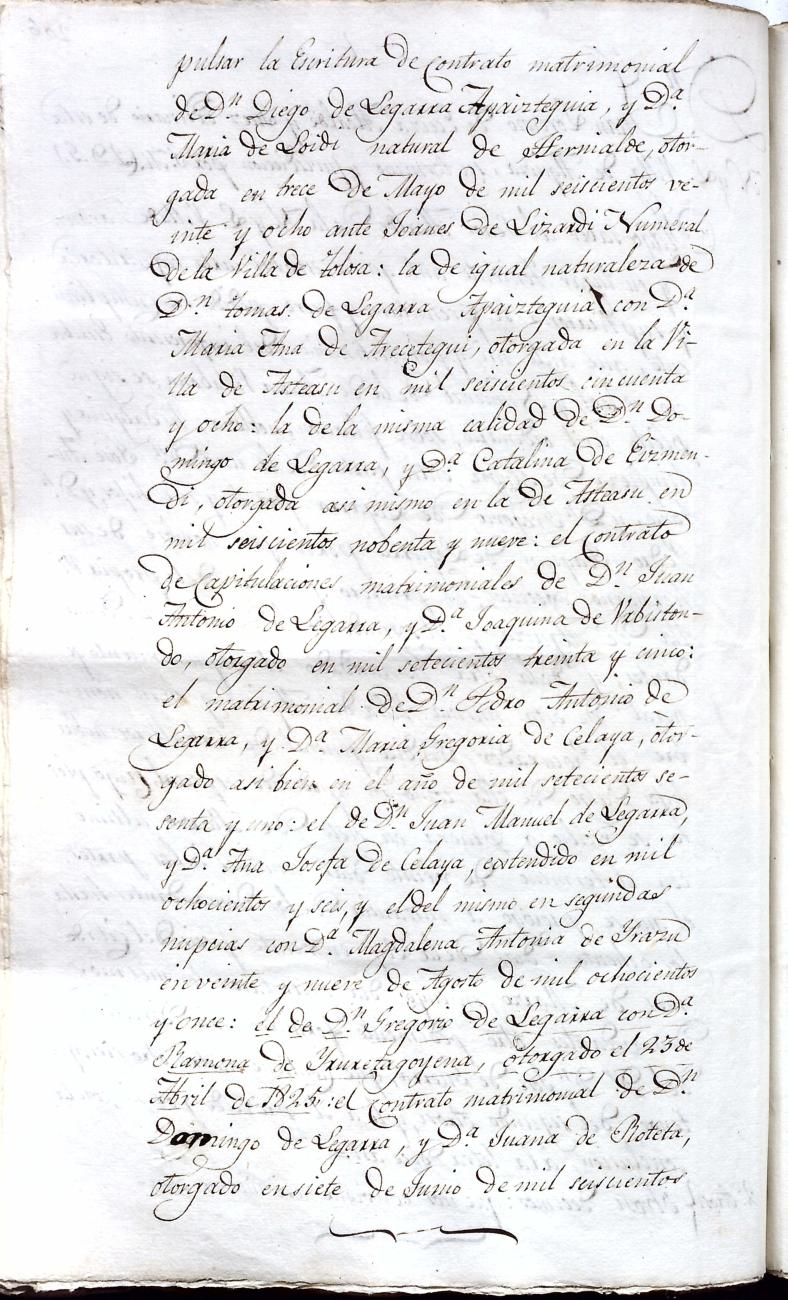 pulsar la Escritura de contrato matrimonial
de Dⁿ Diego de Legarra Apaizteguia, y Dª
Maria de Loidi natural de Hernialde, otor-
gada en trece de Mayo de mil seiscientos ve-
inte y ocho ante Joanes de Lizardi Numeral
de la Villa de Tolosa: la de igual naturaleza de
Dⁿ Tomas de Legarra Apaizteguia con Dª
Maria Ana de Arecetegui, otorgada en la Vi-
lla de Asteasu en mil seiscientos cincuenta
y ocho: la de la misma calidad de Dⁿ Do-
mingo de Legarra, y Dª Catalina de Eizmen-
di, otorgada asi mismo en la de Asteasu en
mil seiscientos nobenta y nueve: el contrato
de Capitulaciones matrimoniales de Dⁿ Juan
Antonio de Legarra, y Dª Joaquina de Urbiston-
do, otorgado en mil setecientos treinta y cinco:
el matrimonial de Dⁿ Pedro Antonio de
Legarra, y Dª Maria Gregoria de Celaya, otor-
gado asi bien en el año de mil setecientos se-
senta y uno: el de Dⁿ Juan Manuel de Legarra,
y Dª Ana Josefa de Celaya, estendido en mil
ochocientos y seis, y el del mismo en segundas
nupcias con Dª Magdalena Antonia de Yrazu
en veinte y nueve de Agosto de mil ochocientos
y once: el de Dⁿ Gregorio de Legarra con Dª
Ramona de Yruretagoyena, otorgado el 23 de
Abril de 1825: el Contrato matrimonial de Dⁿ
Domingo de Legarra, y Dª Juana de Roteta,
otorgado en siete de Junio de mil seiscientos